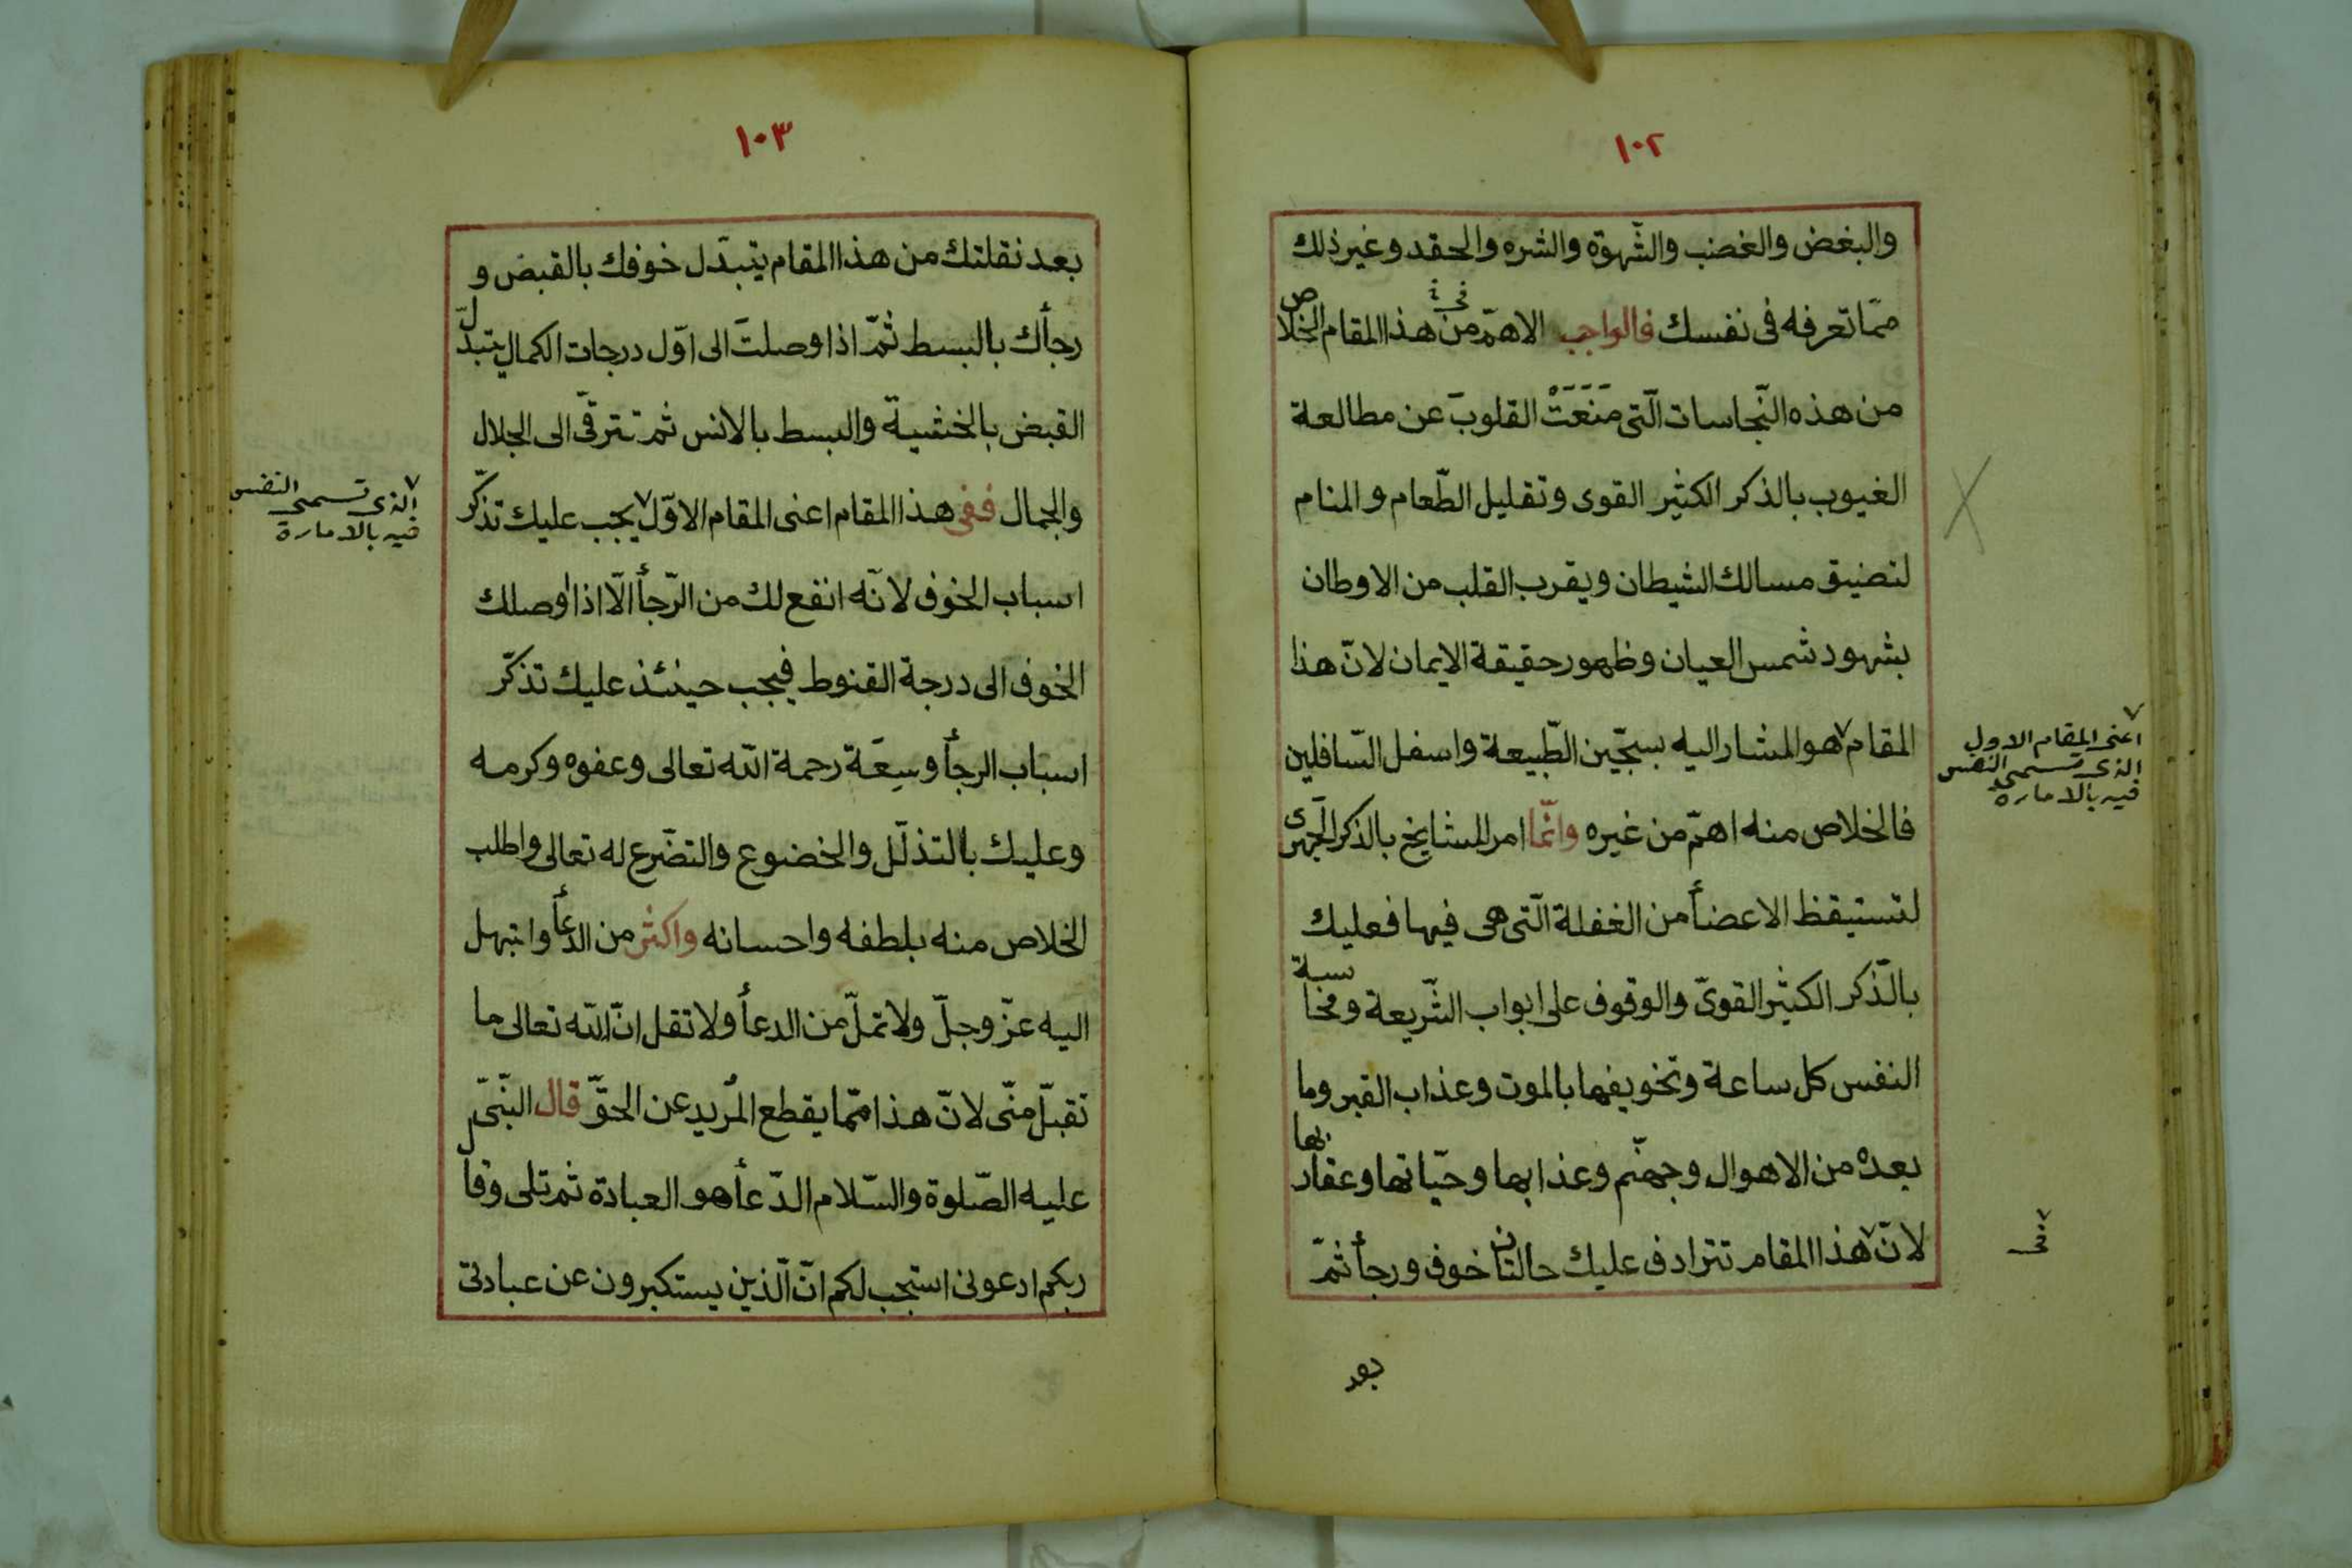 ١٠٢
والبغض والغضب والشّهوة والشره والحقد وغير ذلك
ممّا تعرفه فى نفسك فالواجب الاهمّ من هذا المقام الخلاص
فى خ
من هذه النّجاسات الّتى مَنَعَتْ القلوبَ عن مطالعة
الغيوب بالذكر الكثير القوى وتقليل الطّعام والمنام
لتضيق مسالك الشيطان ويقرب القلب من الاوطان
بشهود شمس العيان وظهور حقيقة الايمان لانّ هذا
المقام٧ هو المشار اليه بسجّين الطّبيعة واسفل السّافلين
٧
اعنى المقام الاول
الذى تسمى النفس
فيه بالامارة
فالخلاص منه اهمّ من غيره وانّما امر المشايخ بالذكر الجَهرى
لتستيقظ الاعضأ من الغفلة الّتى هى فيها فعليك
بالذّكر الكثير القوىّ والوقوف على ابواب الشّريعة ومحاسبة
النفس كل ساعة وتخويفها بالموت وعذاب القبر وما
بعده من الاهوال وجهنّم وعذابها وحيّاتها وعقاربها
لانّ٧ هذا المقام تترادف عليك حالتان خوف ورجأ ثمّ
٧
فى
بعد
١٠٣
بعد نقلتك من هذا المقام يتبدّل خوفك بالقبض و
رجأك بالبسط ثمّ اذا وصلتَ الى اوّل درجات الكمال يتبدّل
القبض بالخشية والبسط بالانس ثم تترقّى الى الجلال
والجمال ففى هذا المقام اعنى المقام الاوّل٧ يجب عليك تذكّر
٧
الذى تسمى النفس
فيه بالامارة
اسباب الخوف لانّه انفع لك من الرّجأ الّا اذا اوصلك
الخوف الى درجة القنوط فيجب حينئذ عليك تذكّر
اسباب الرجأ وسِعَة رحمة الله تعالى وعفوه وكرمه
وعليك بالتذلّل والخضوع والتضّرع له تعالى واطلب
الخلاص منه بلطفه واحسانه واكثر من الدعأ وابتهل
اليه عزّ وجلّ ولا تملّ من الدعأ ولا تقل انّ الله تعالى ما
تقبّل منّى لانّ هذا ممّا يقطع المريد عن الحقّ قال النّبىّ
عليه الصّلوة والسّلام الدّعأ هو العبادة ثم تلى وقال
ربكم ادعونى استجب لكم انّ الّذين يستكبرون عن عبادتى